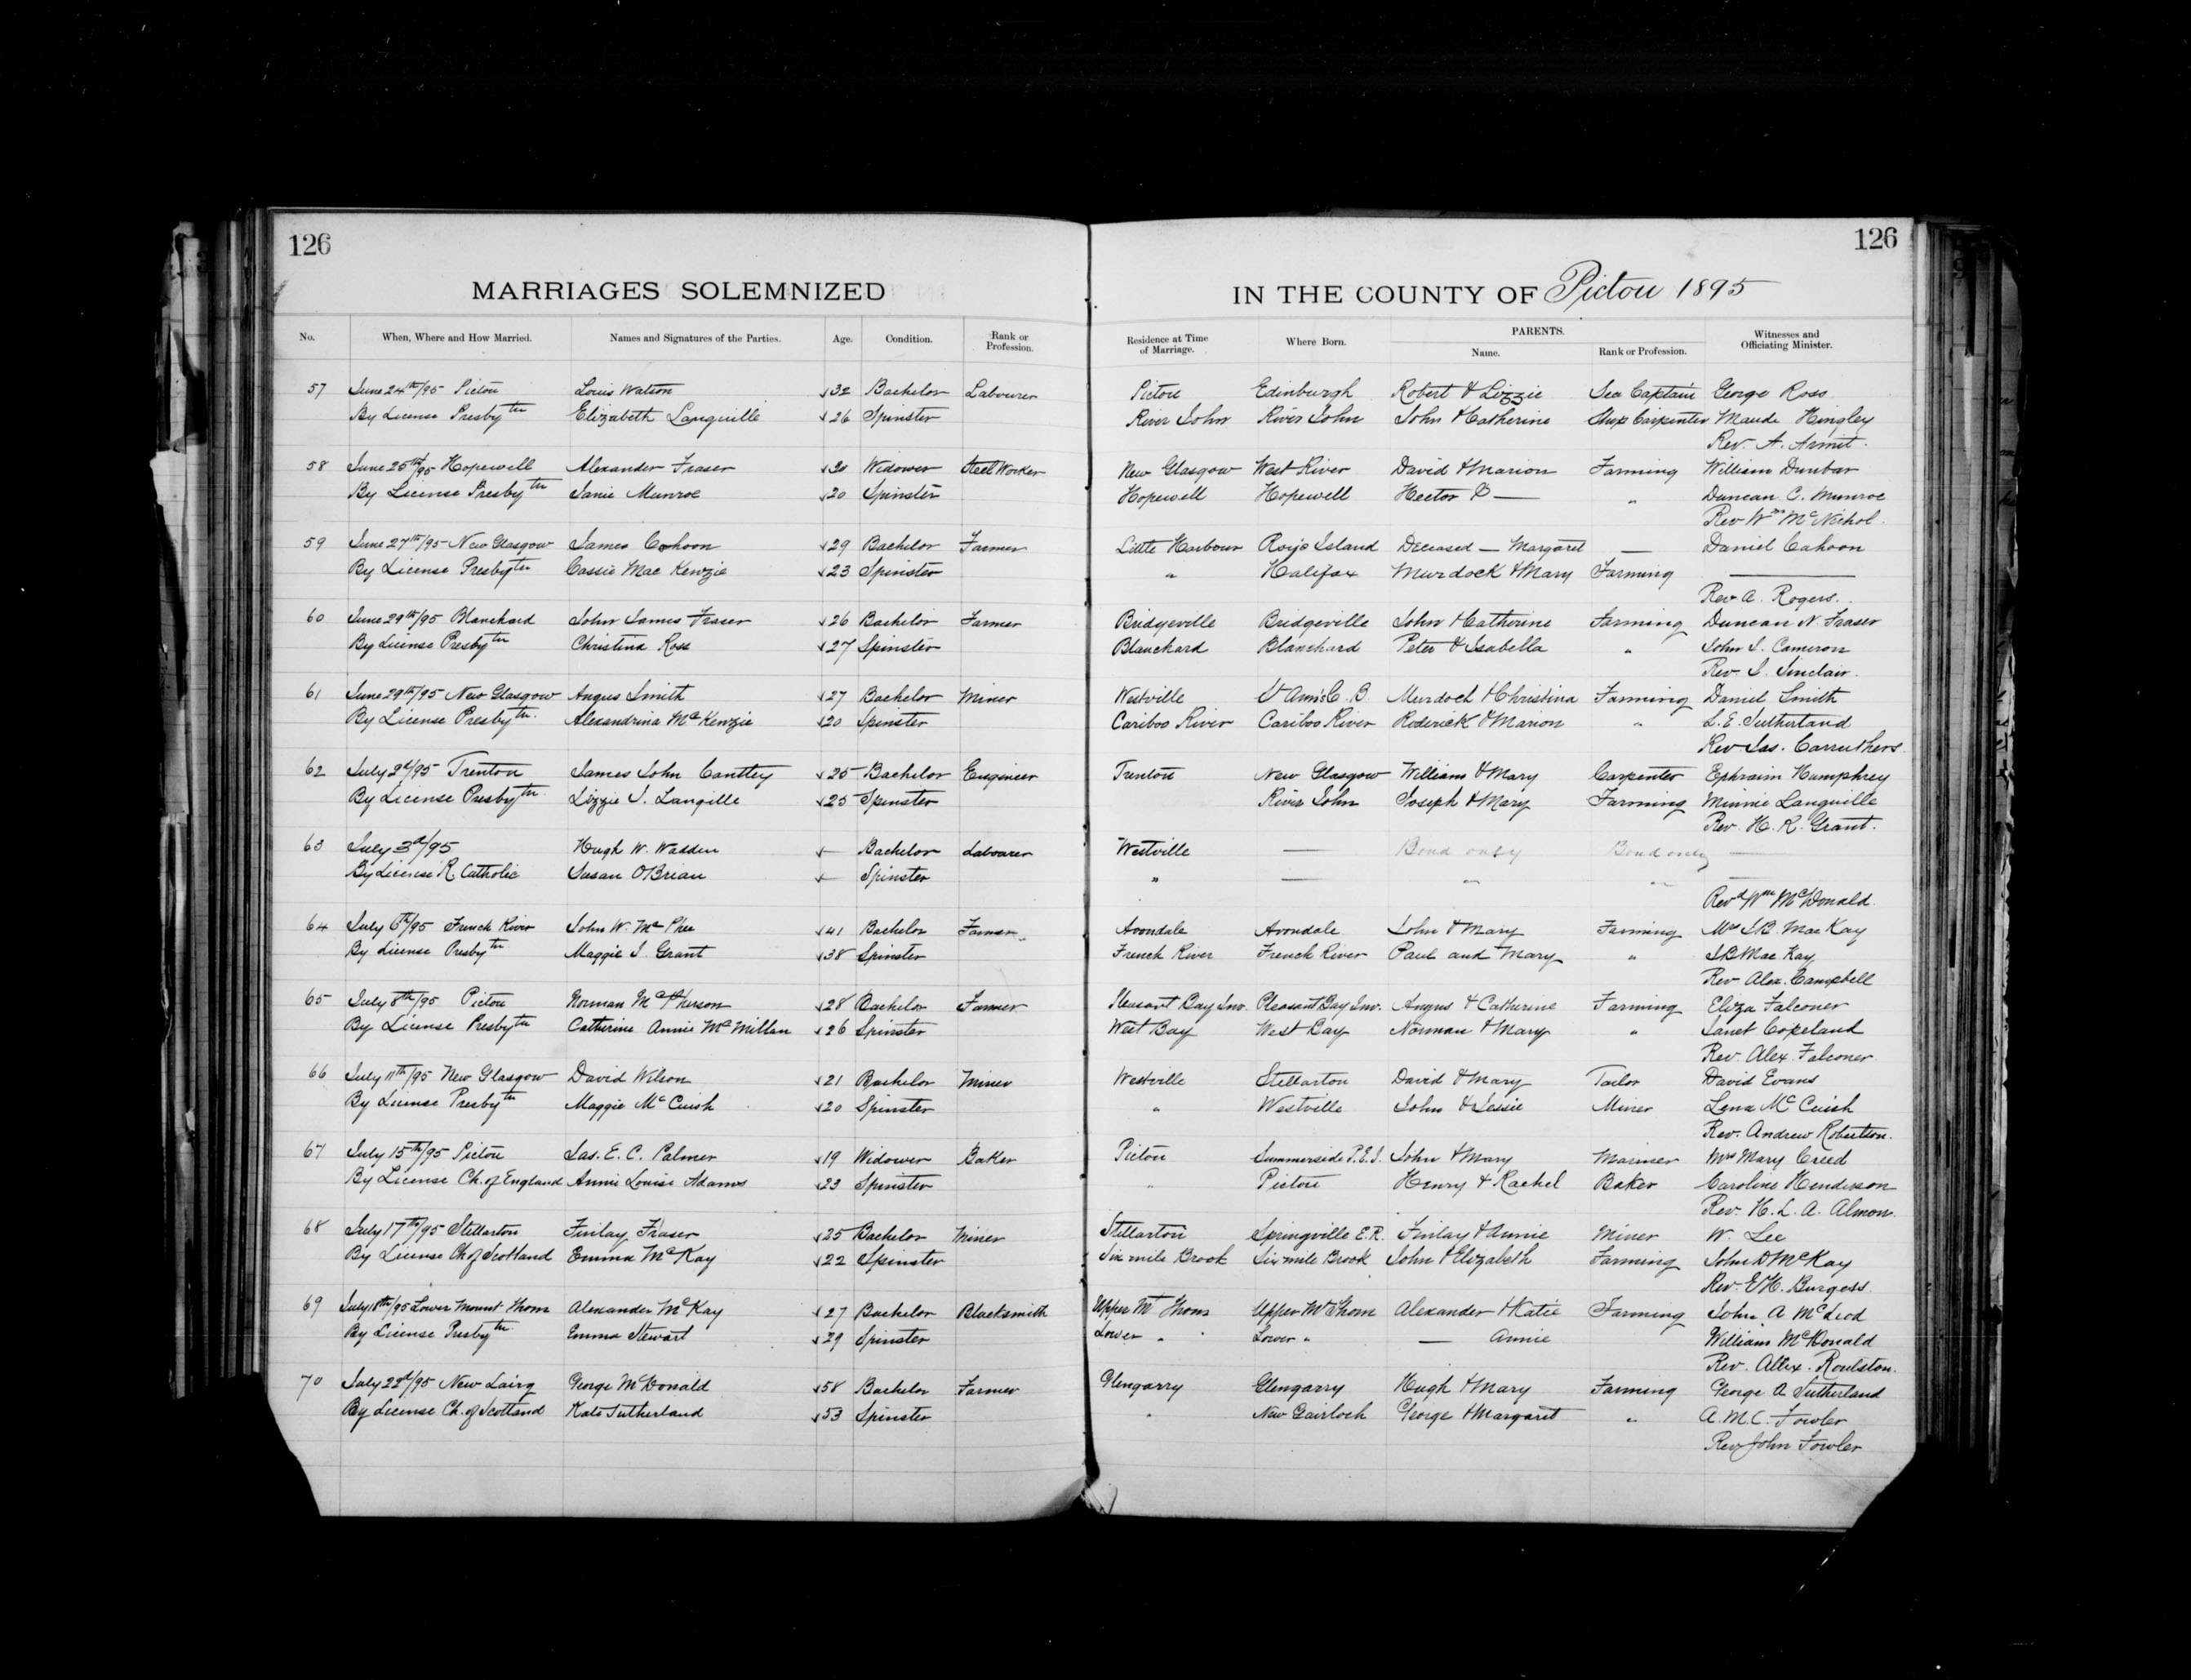 126
126
MARRIAGES SOLEMNIZED IN THE COUNTY OF Pictou 1895
No. When, Where and How Married. Names and Signatures of the Parties. Age. Condition. Rank or Profession. Residence at Time of Marriage. Where Born. PARENTS. Name. Rank or Profession. Witnesses and Officiating Minister.
57 June 24th/95 Pictou Louis Watson 32 Bachelor Labourer Pictou Edinburgh Robert & Lizzie Sea Captain George Ross
By License Presbytn Elizabeth Languille 26 Spinster River John River John John & Catherine Ship Carpenter Maude Hingley
Rev. A. Armit.
58 June 25th/95 Hopewell Alexander Fraser Widower Steel Worker New Glasgow West River David & Marion Farming William Dunbar
By License Presbytn Janie Munroe 20 Spinster Hopewell Hopewell Hector & — " Duncan C. Munroe
Rev Wm McNichol.
59 June 27th/95 New Glasgow James Cohoon 29 Bachelor Farmer Little Harbour Roy's Island Deceased — Margaret — Daniel Cahoon
By License Presbytn Cassie Mac Kenzie 23 Spinster " Halifax Murdock & Mary Farming —
Rev A. Rogers.
60 June 29th/95 Blanchard John James Fraser 26 Bachelor Farmer Bridgeville Bridgeville John & Catherine Farming Duncan N Fraser
By License Presbytn Christina Ross 27 Spinster Blanchard Blanchard Peter & Isabella " John J. Cameron
Rev. J. Sinclair.
61 June 29th/95 New Glasgow Angus Smith 27 Bachelor Miner Westville C. B. Murdoch & Christina Farming Daniel Smith
By License Presbytn. Alexandrina McKenzie 20 Spinster Cariboo River Cariboo River Roderick & Marion " L. E. Sutherland
Rev. Jas. Carruthers.
62 July 2d/95 Trenton James John Cantley 25 Bachelor Engineer Trenton New Glasgow William & Mary Carpenter Ephraim Humphrey
By License Presbytn. Lizzie J. Langille 25 Spinster River John Joseph & Mary Farming Minnie Languille
Rev. H. R. Grant.
63 July 3d/95 Hugh W. Wadden — Bachelor Labourer Westville — Bond only Bond only —
By License R. Catholic Susan OBrian — Spinster " — " " —
Revd Wm McDonald.
64 July 6th/95 French River John W. McPhee 41 Bachelor Farmer Avondale Avondale John & Mary Farming Mrs J B MacKay
By License Presbytn Maggie J. Grant 38 Spinster French River French River Paul and Mary " J B MacKay
Rev Alex. Campbell
65 July 8th/95 Pictou Norman McPherson 28 Bachelor Farmer Pleasant Bay Inv. Pleasant Bay Inv. Angus & Catherine Farming Eliza Falconer
By License Presbytn Catherine Annie McMillan 26 Spinster West Bay West Bay Norman & Mary " Janet Copeland
Rev. Alex. Falconer.
66 July 11th/95 New Glasgow David Wilson 21 Bachelor Miner Westville Stellarton David & Mary Tailor David Evans
By License Presbytn Maggie McCuish 20 Spinster " Westville John & Jessie Miner Lena McCuish
Rev. Andrew Robertson.
67 July 15th/95 Pictou Jas. E. C. Palmer 19 Widower Baker Pictou Summerside P.E.I. John & Mary Mariner Mrs Mary Creed
By License Ch. of England Annie Louise Adams 23 Spinster " Pictou Henry & Rachel Baker Caroline Henderson
Rev. H. L. A. Almon.
68 July 17th/95 Stellarton Finlay Fraser 25 Bachelor Miner Stellarton Springville E.R. Finlay & Annie Miner W. Lee
By License Ch. of Scotland Emma McKay 22 Spinster Six mile Brook Six mile Brook John & Elizabeth Farming John D McKay
Rev. E H. Burgess.
69 July 18th/95 Lower Mount Thom Alexander McKay 27 Bachelor Blacksmith Upper Mt Thom Upper Mt Thom Alexander & Katie Farming John A McLeod
By License Presbytn. Emma Stewart 29 Spinster Lower " Lower " — Annie William McDonald
Rev. Allex. Roulston.
70 July 22d/95 New Lairg George McDonald 58 Bachelor Farmer Glengarry Glengarry Hugh & Mary Farming George A Sutherland
By License Ch. of Scotland Kate Sutherland 53 Spinster " New Gairloch George & Margaret " A. M. C. Fowler
Rev John Fowler